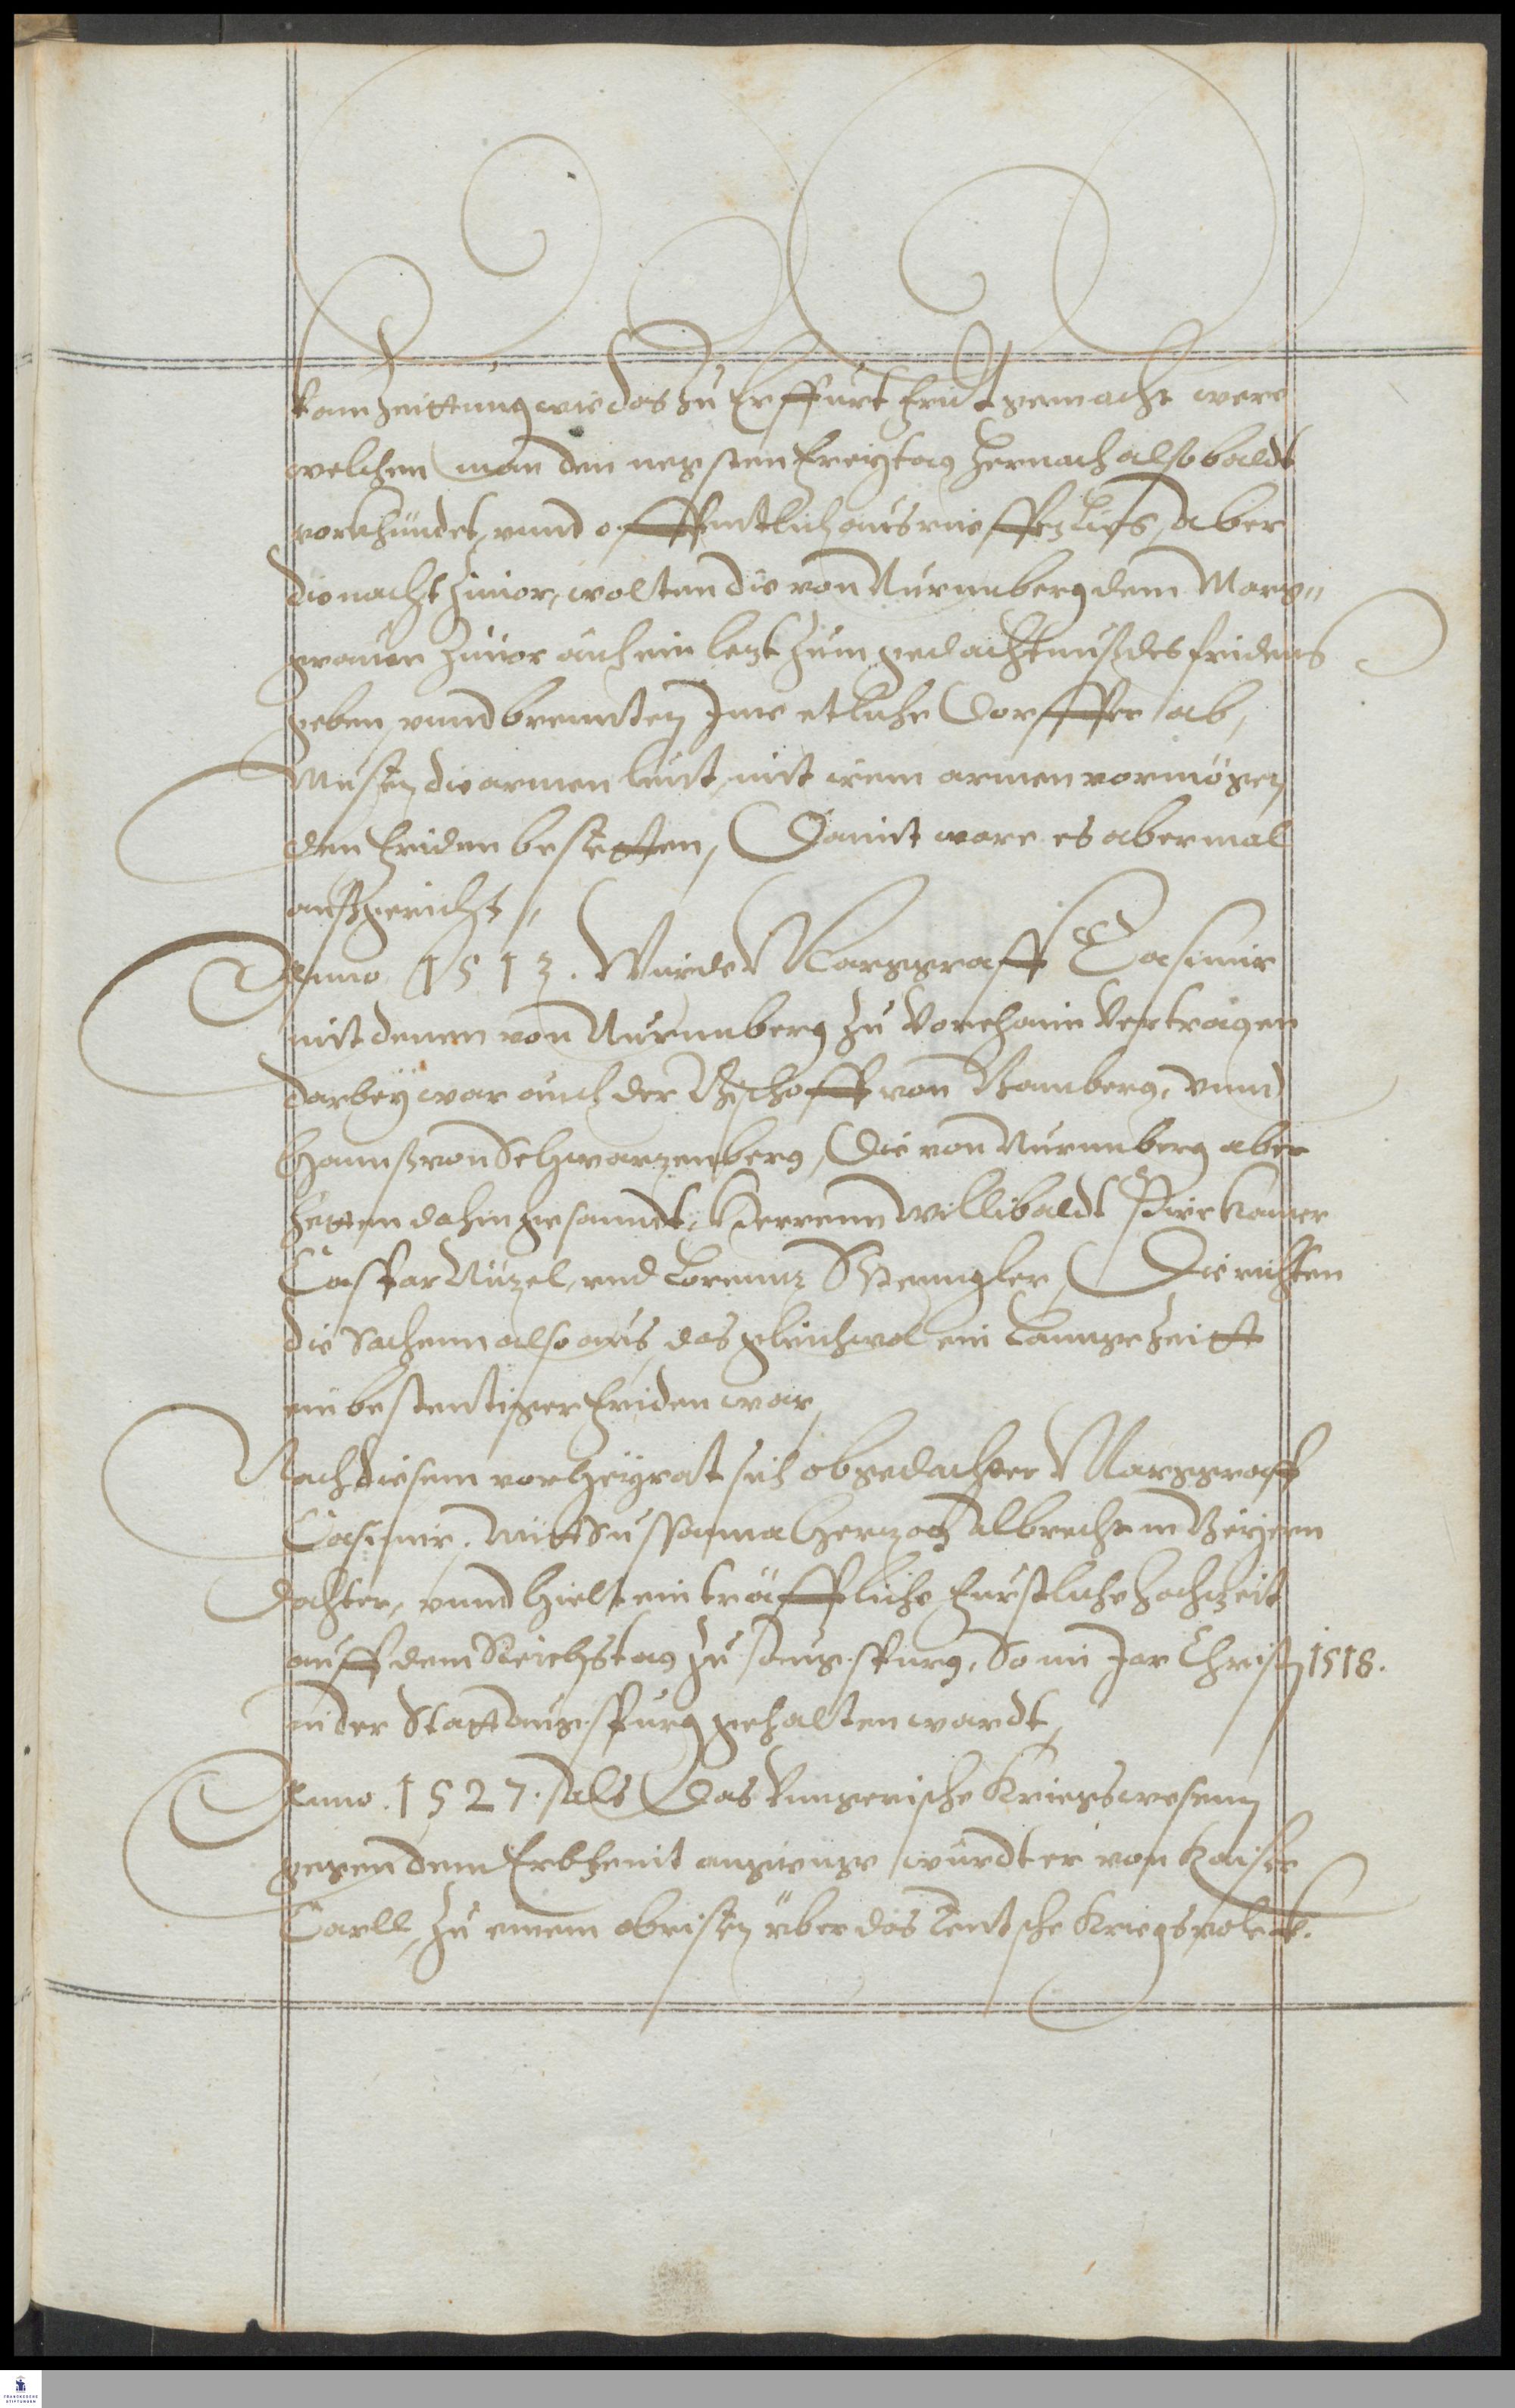 kam Zeittung wie das zu Erffurt frid gemacht were
welchen man den negsten Freÿtag hernach also baldt
vorkhündet, vnnd offentlich ausrueffen lies, Aber
die nacht zuuor, wolten die von Nürmberg dem Marg„
grauen zuuor auch ein lezt zum gedachtnuß des fridens
geben, vnnd brennten Jme etliche Dorffer ab,
Musten die armen leut, mit irem armen vormögen
den friden bestetten, Damit ware es abermal
außgericht,,
Anno 1513. Wurde Marggraff Casimir
mit denen von Nürmberg zu Vorchaim Vertragen
darbeÿ war auch der Bischoff von Bamberg, Vnnd
Hannß von Schwarzenberg, Die von Nürmberg aber
hetten dahin gesanndt, Herrenn Willibaldt Pirckamer
Caspar Nüzel, vnd Lorennz Spenngler, Die richten
die Sachenn also aus, das gleichwol ein Lannge Zeitt
ein bestenntiger friden war,
Nach diesem vorheÿrat sich obgedachter Marggraff
Casimir, Mitt Sussanna Herzog Albrecht in Beÿern
dochter, vnnd hielt ein träffliche Furstliche hochzeit
auff dem Reichstag zu Augspurg, So im Jar Christi 1518.
in der Statt Augspurg gehalten wardt,
Anno 1527. Als Das Vngerische Kriegswesenn
gegen dem Erbfeint angienge wurdt er von Kaiser
Carll, zu einem obristen über das Teutsche Kriegsvolck.
FRANCKESCHE
STIFTUNGEN